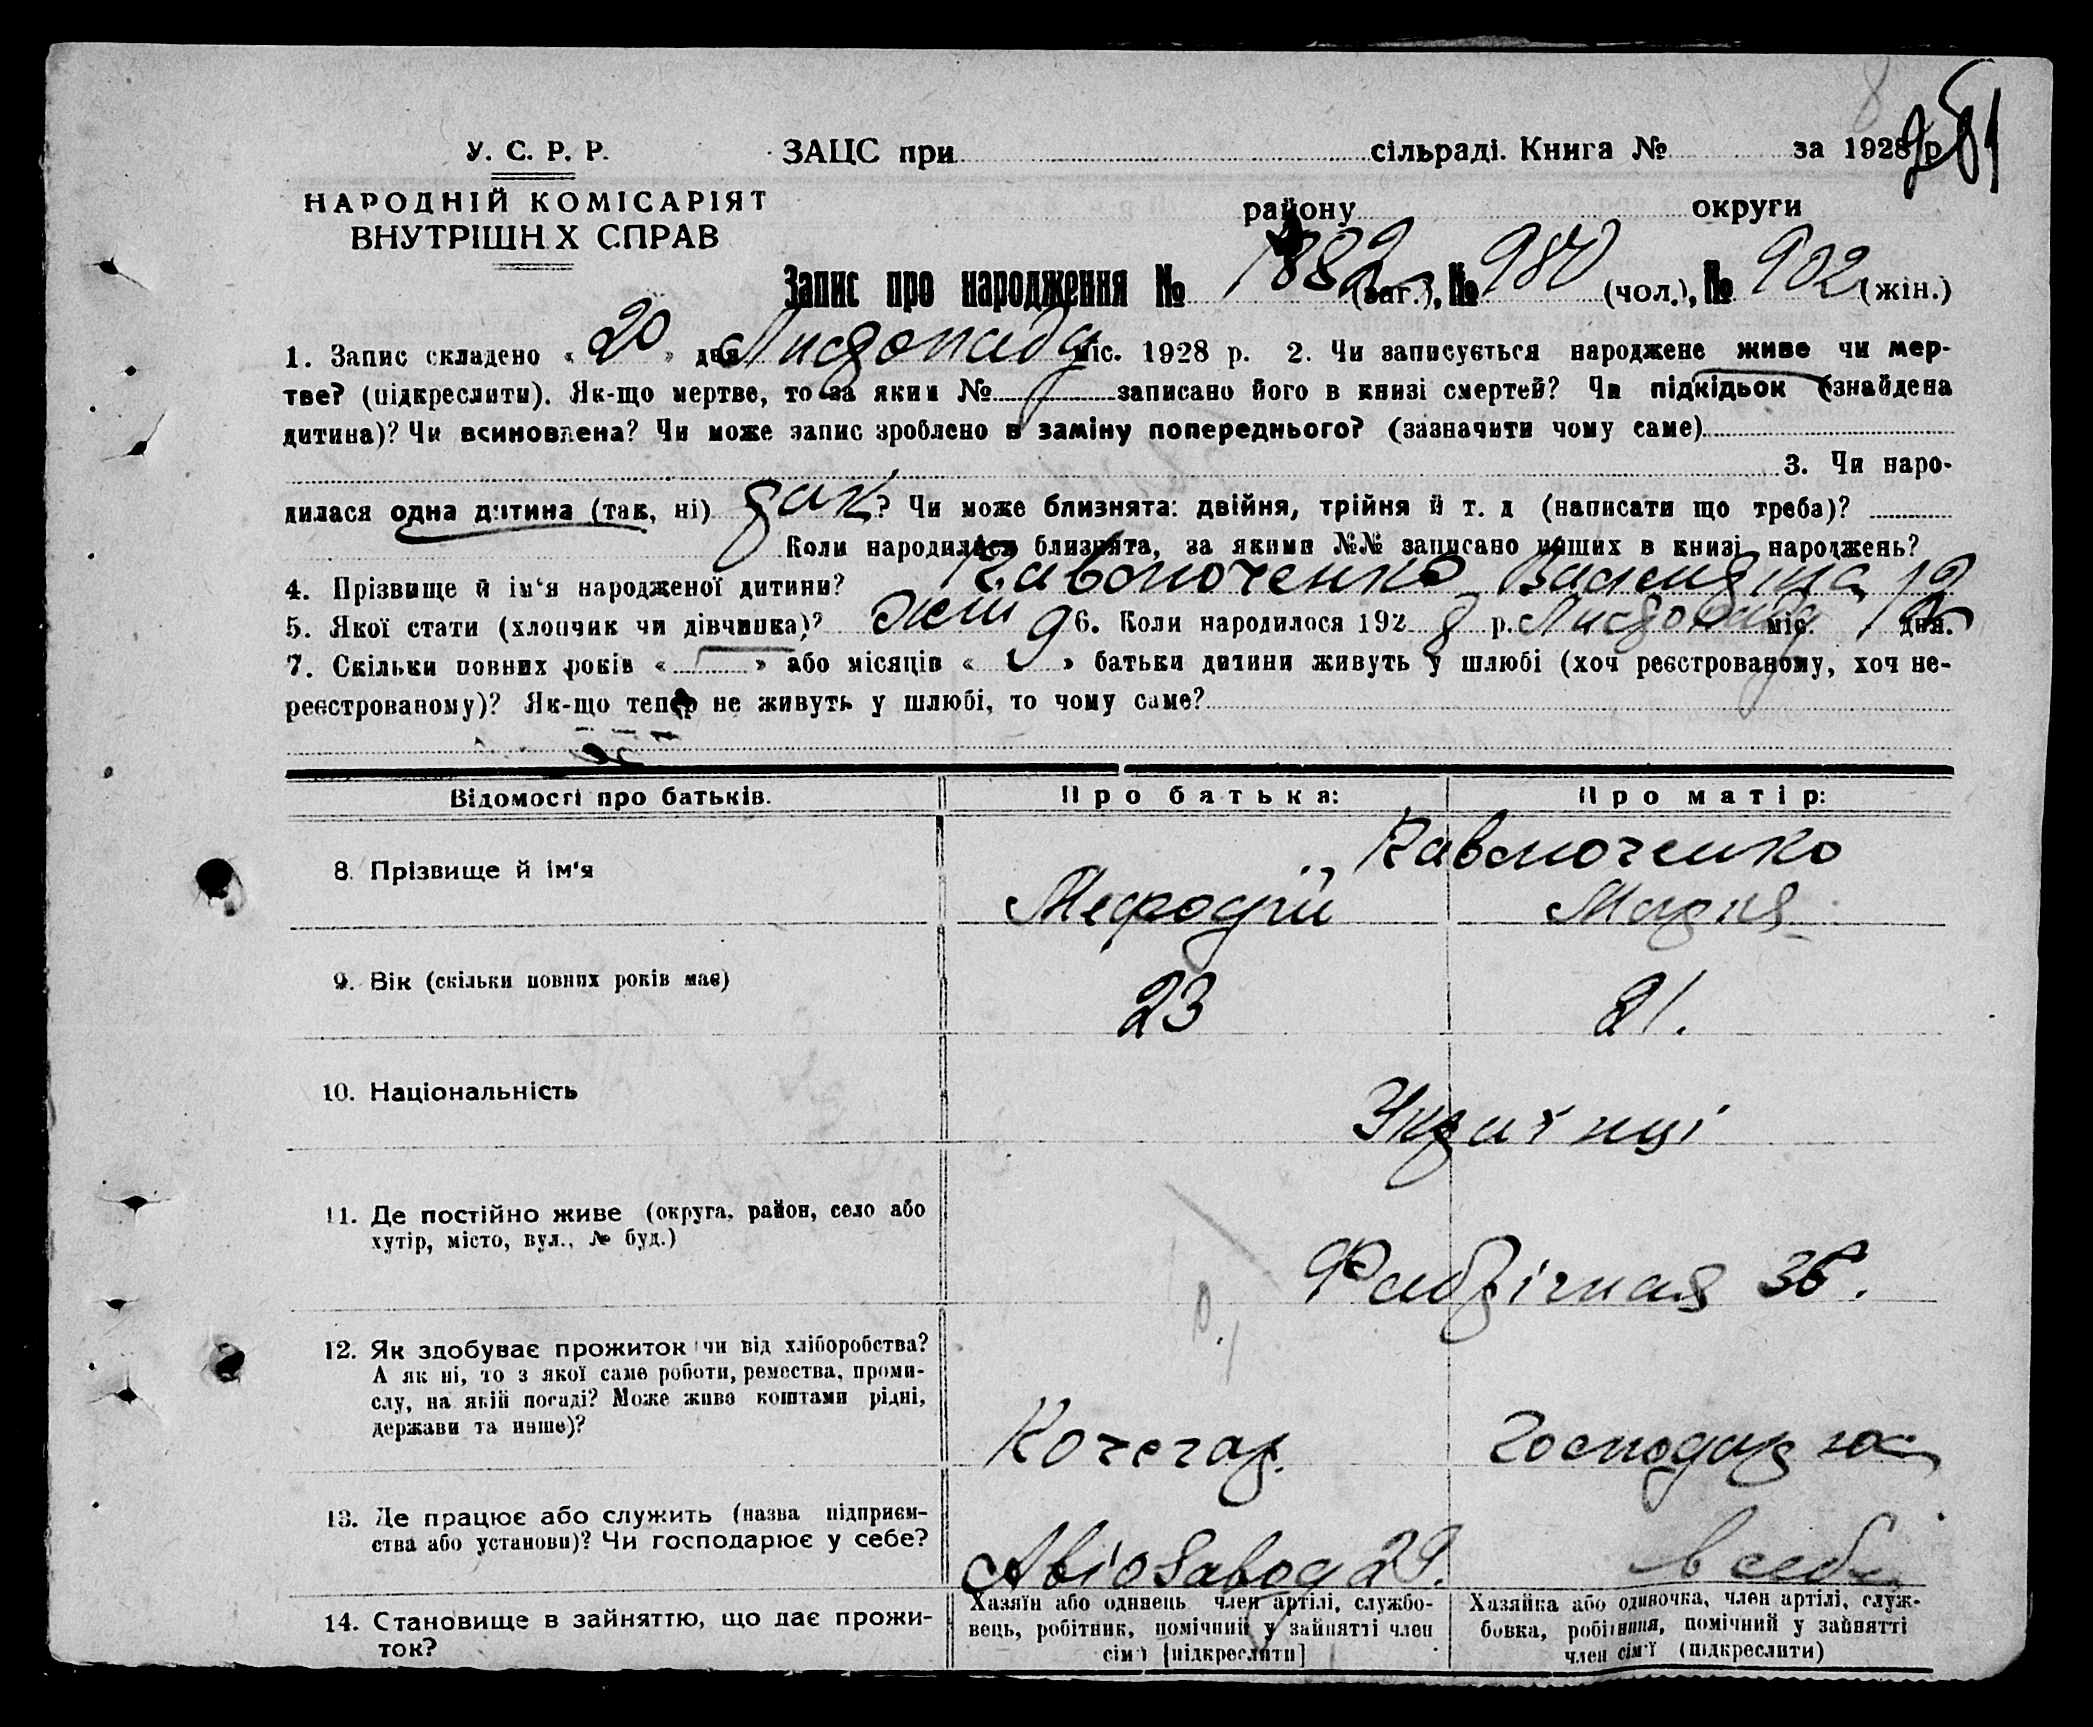 8
251
У. С. Р. Р.
ЗАЦС при сільраді. Книга № за 1928 р.
НАРОДНІЙ КОМІСАРІЯТ
району округи
ВНУТРІШН Х СПРАВ
Запис про народження № 1882 (заг.), № 980 (чол.), № 902 (жін.)
1. Запис складено « 20 » дня Листопада міс. 1928 р. 2. Чи записується народжене живе чи мер-
тве? (підкреслити). Як-що мертве, то за яким № записано його в книзі смертей? Чи підкідьок (знайдена
дитина)? Чи всиновлена? Чи може запис зроблено в заміну попереднього? (зазначити чому саме)
3. Чи наро-
дилася одна дитина (так, ні) так? Чи може близнята: двійня, трійня й т. д (написати що треба)?
Коли народилися близнята, за якими №№ записано инших в книзі народжень?
4. Прізвище й ім‘я народженої дитини? Кавлюченко Валентина
5. Якої стати (хлопчик чи дівчинка)? жін 6. Коли народилося 1928 р. Листопада міс. 12 дня.
7. Скільки повних років « » або місяців « » батьки дитини живуть у шлюбі (хоч реєстрованому, хоч не-
реєстрованому)? Як-що тепер не живуть у шлюбі, то чому саме?
Відомості про батьків. Про батька: Про матір:
Кавлюченко
8. Прізвище й ім‘я Мефодій Мария
9. Вік (скільки повних років має) 23 21.
10. Національність Українці
11. Де постійно живе (округа, район, село або
хутір, місто, вул., № буд.)
Фабрічная 36.
12. Як здобуває прожиток (чи від хліборобства?
А як ні, то з якої саме роботи, ремества, проми-
слу, на якій посаді? Може живе коштами рідні,
держави та инше)?
Кочегар. Господарює
13. Де працює або служить (назва підприєм-
ства або установи)? Чи господарює у себе?
Авіозавод 29. в себе
14. Становище в зайняттю, що дає прожи-
ток?
Хазяїн або одинець член артілі, службо-
вець, робітник, помічний у зайнятті член
сім‘ї [підкреслити]
Хазяйка або одиночка, член артілі, служ-
бовка, робітниця, помічний у зайнятті
член сім‘ї (підкреслити)